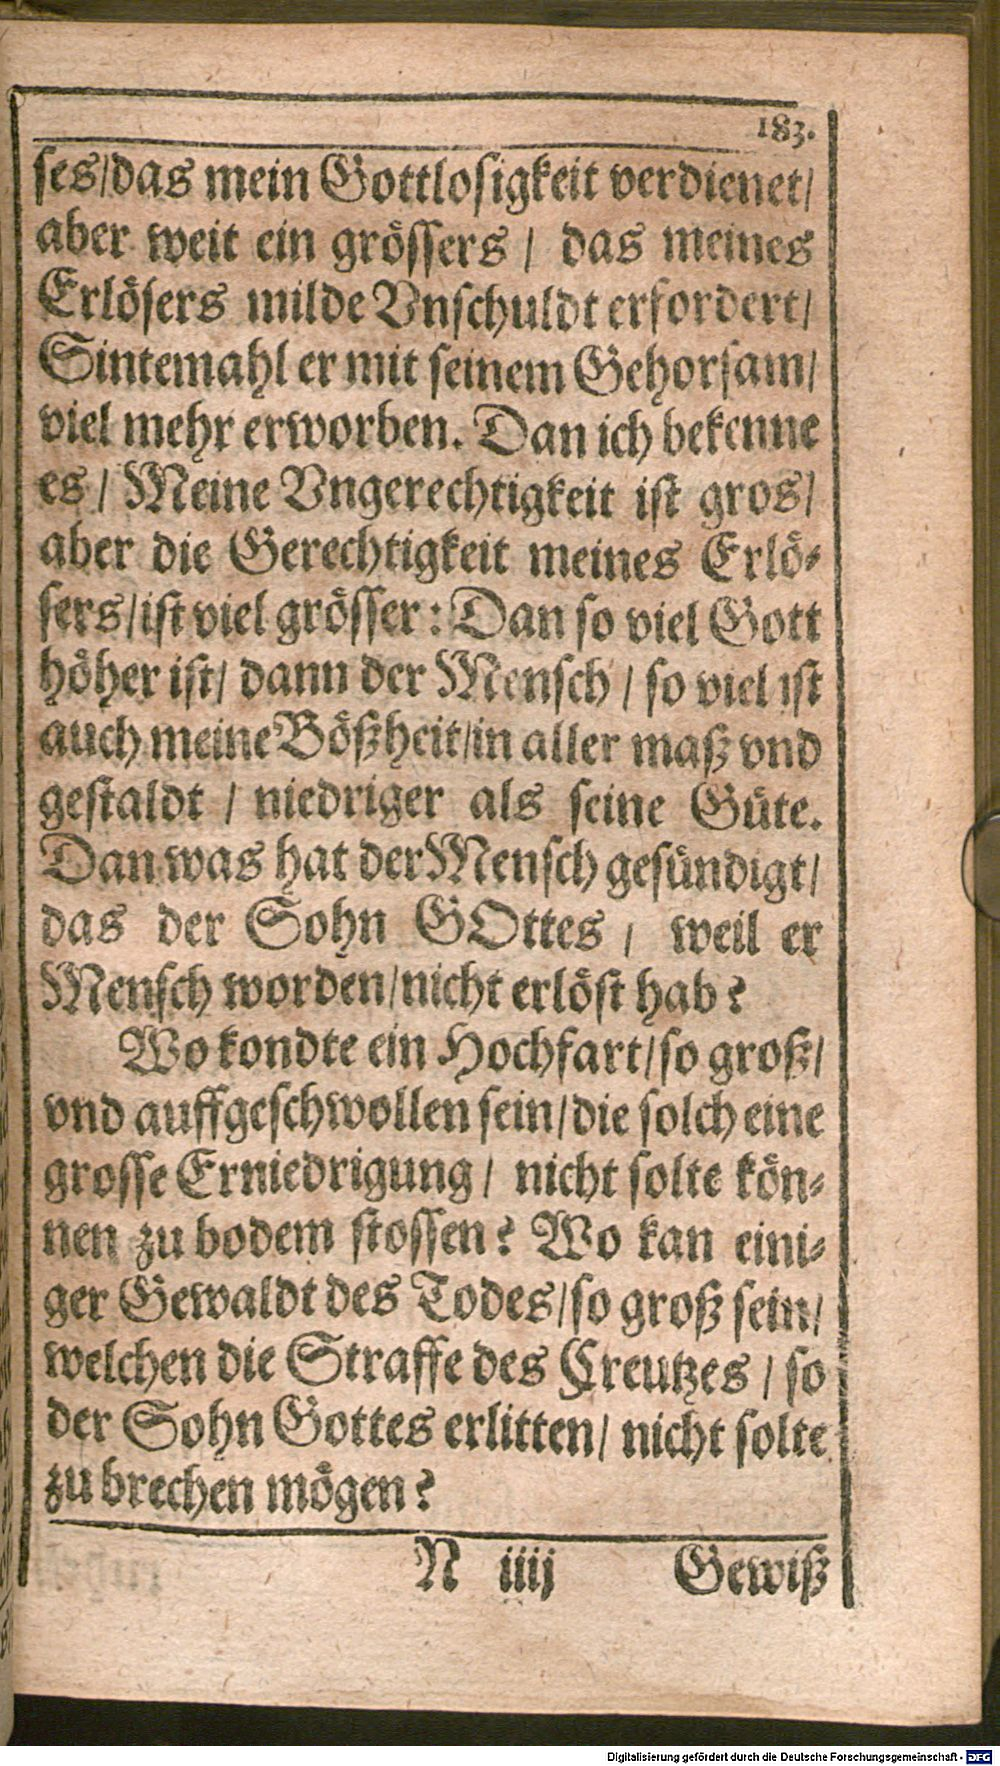 183.
ses/das mein Gottlosigkeit verdienet/
aber weit ein grössers / das meines
Erlösers milde Vnschuldt erfordert/
Sintemahl er mit seinem Gehorsam/
viel mehr erworben. Dan ich bekenne
es / Meine Vngerechtigkeit ist gros/
aber die Gerechtigkeit meines Erlö-
sers/ist viel grösser: Dan so viel Gott
höher ist/ dann der Mensch / so viel ist
auch meine Bößheit/in aller maß vnd
gestaldt / niedriger als seine Güte.
Dan was hat der Mensch gesündigt/
das der Sohn GOttes / weil er
Mensch worden/nicht erlöst hab?
Wo kondte ein Hochfart/so groß/
vnd auffgeschwollen sein/die solch eine
grosse Erniedrigung / nicht solte kön-
nen zu bodem stossen? Wo kan eini-
ger Gewaldt des Todes/so groß sein/
welchen die Straffe des Creutzes / so
der Sohn Gottes erlitten/ nicht solte
zu brechen mögen?
N iiij Gewiß
Digitalisierung gefördert durch die Deutsche Forschungsgemeinschaft - DFG